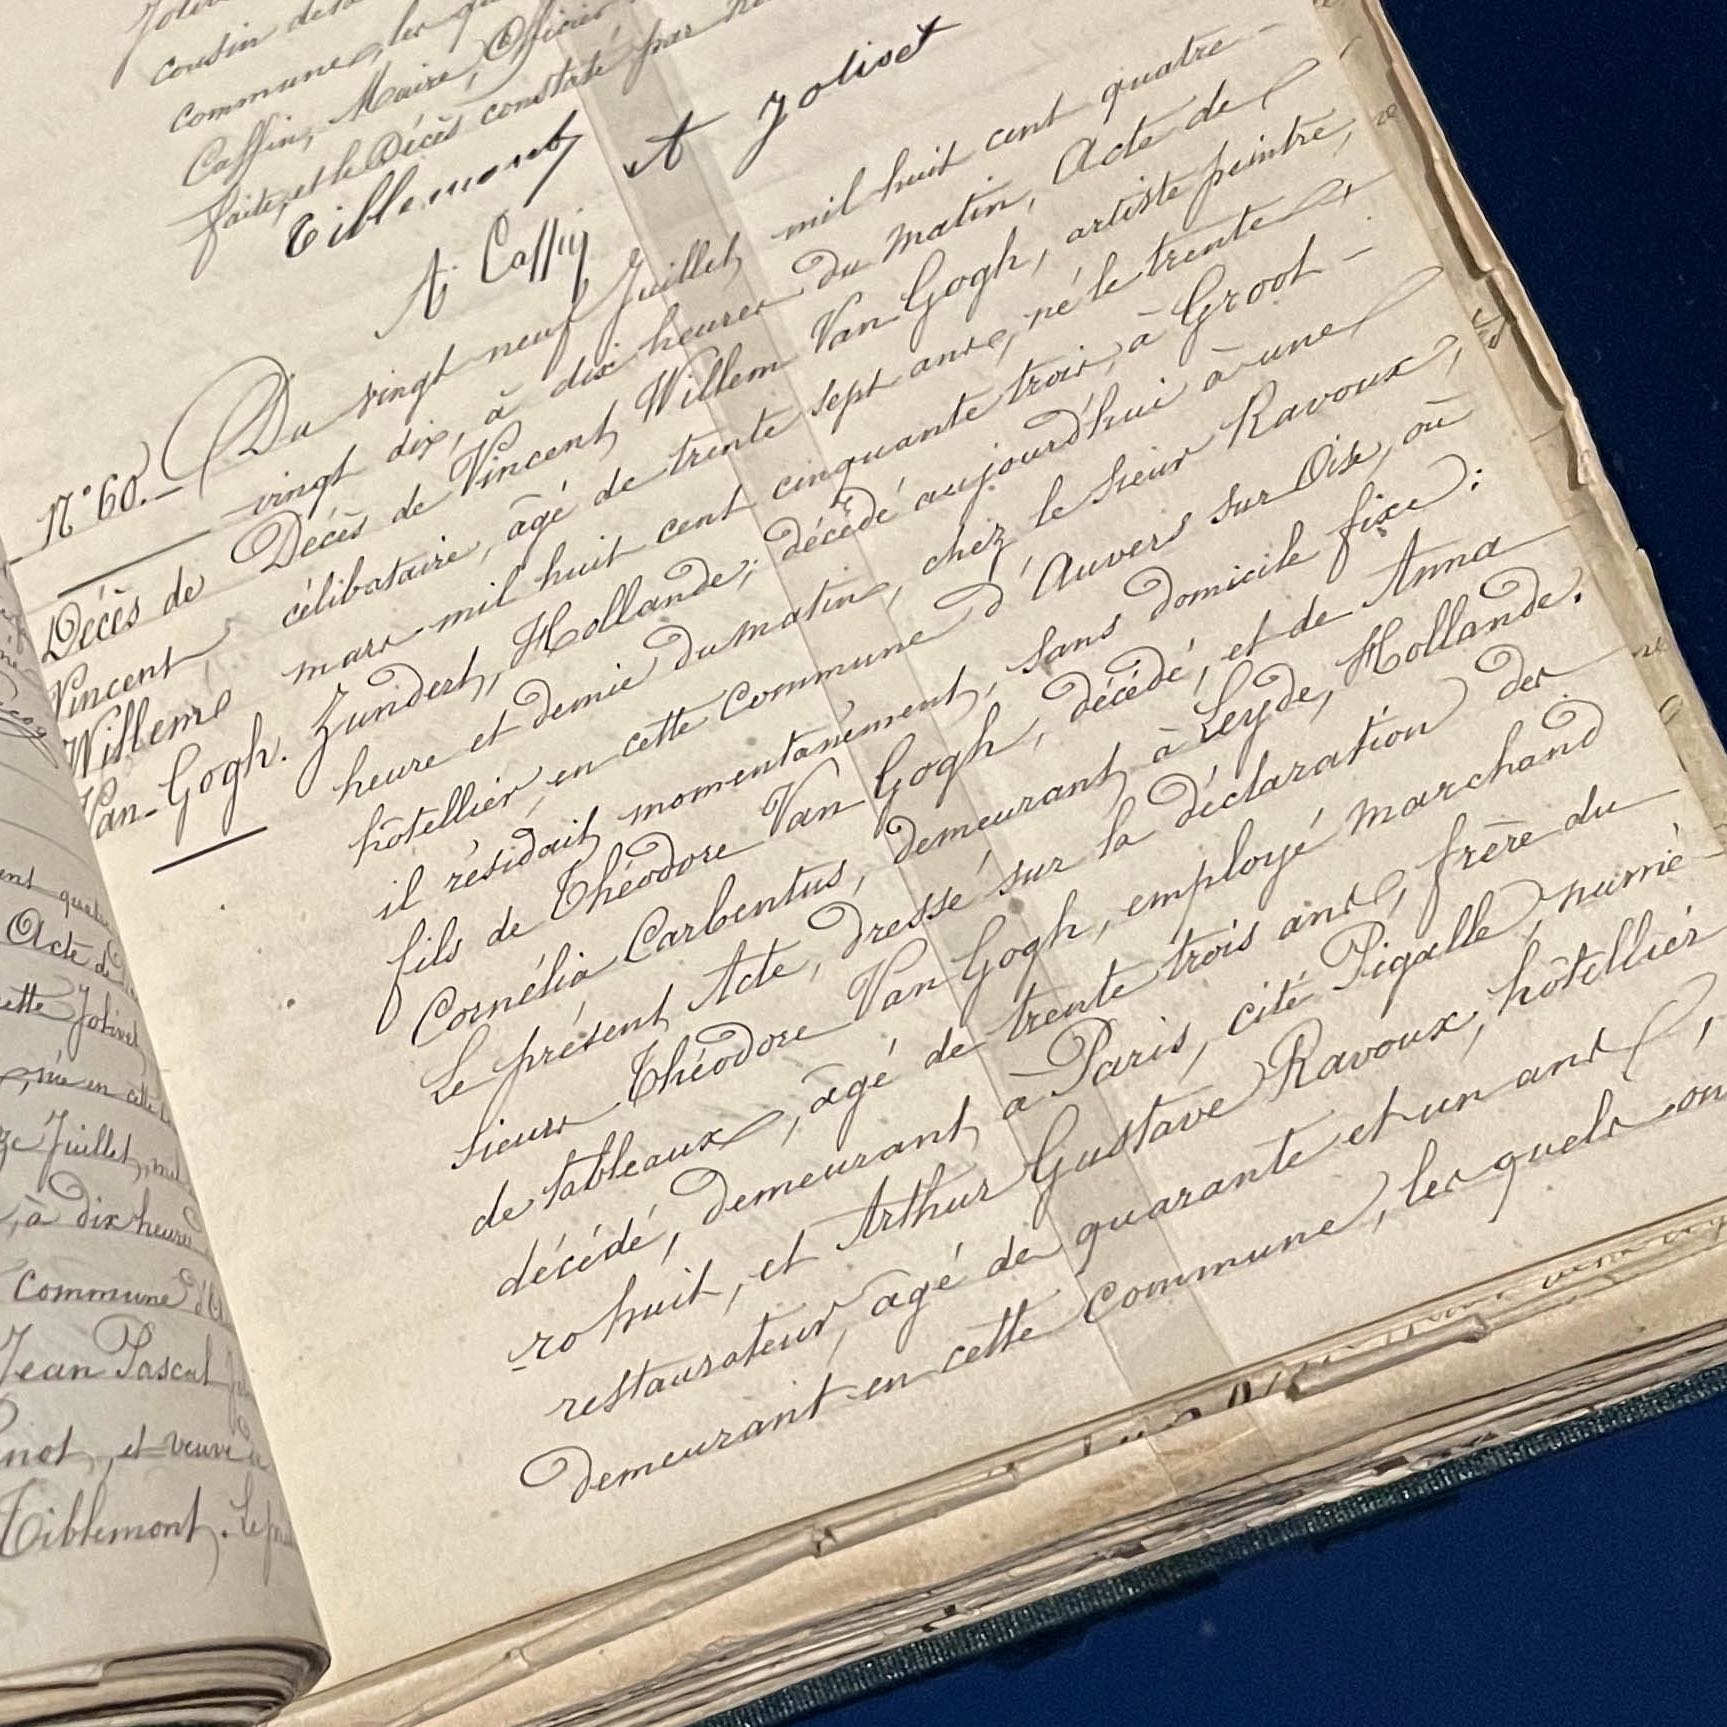 cousin de
commune, les
Caffin, Maire, Officier
faite, et le Décès constaté par
Tiblemont A Jolivet
A Caffin
N° 60. — Du vingt neuf Juillet mil huit cent quatre-
vingt dix, à dix heures du matin, Acte de
Décès de Vincent Willem Van-Gogh, artiste peintre,
célibataire, âgé de trente sept ans, né le trente
mars mil huit cent cinquante trois, à Groot-
Zundert, Hollande; décédé aujourd'hui à une
heure et demie du matin, chez le sieur Ravoux,
hôtellier, en cette commune d'Auvers sur Oise, où
il résidait momentanément, sans domicile fixe:
fils de Théodore Van-Gogh, décédé, et de Anna
Cornélia Carbentus, demeurant à Leyde, Hollande.
Le présent Acte, dressé sur la déclaration des
sieurs Théodore Van-Gogh, employé marchand
de tableaux, âgé de trente trois ans, frère du
décédé, demeurant a Paris, cité Pigalle, numé-
ro huit, et Arthur Gustave Ravoux, hôtellier
restaurateur, agé de quarante et un ans,
demeurant en cette commune, les quels on
Décès de
Vincent
Willem
Van-Gogh.
Acte de
Juillet, mil
à dix heures
commune
Jean Pascal
et veuve
Tiblemont.